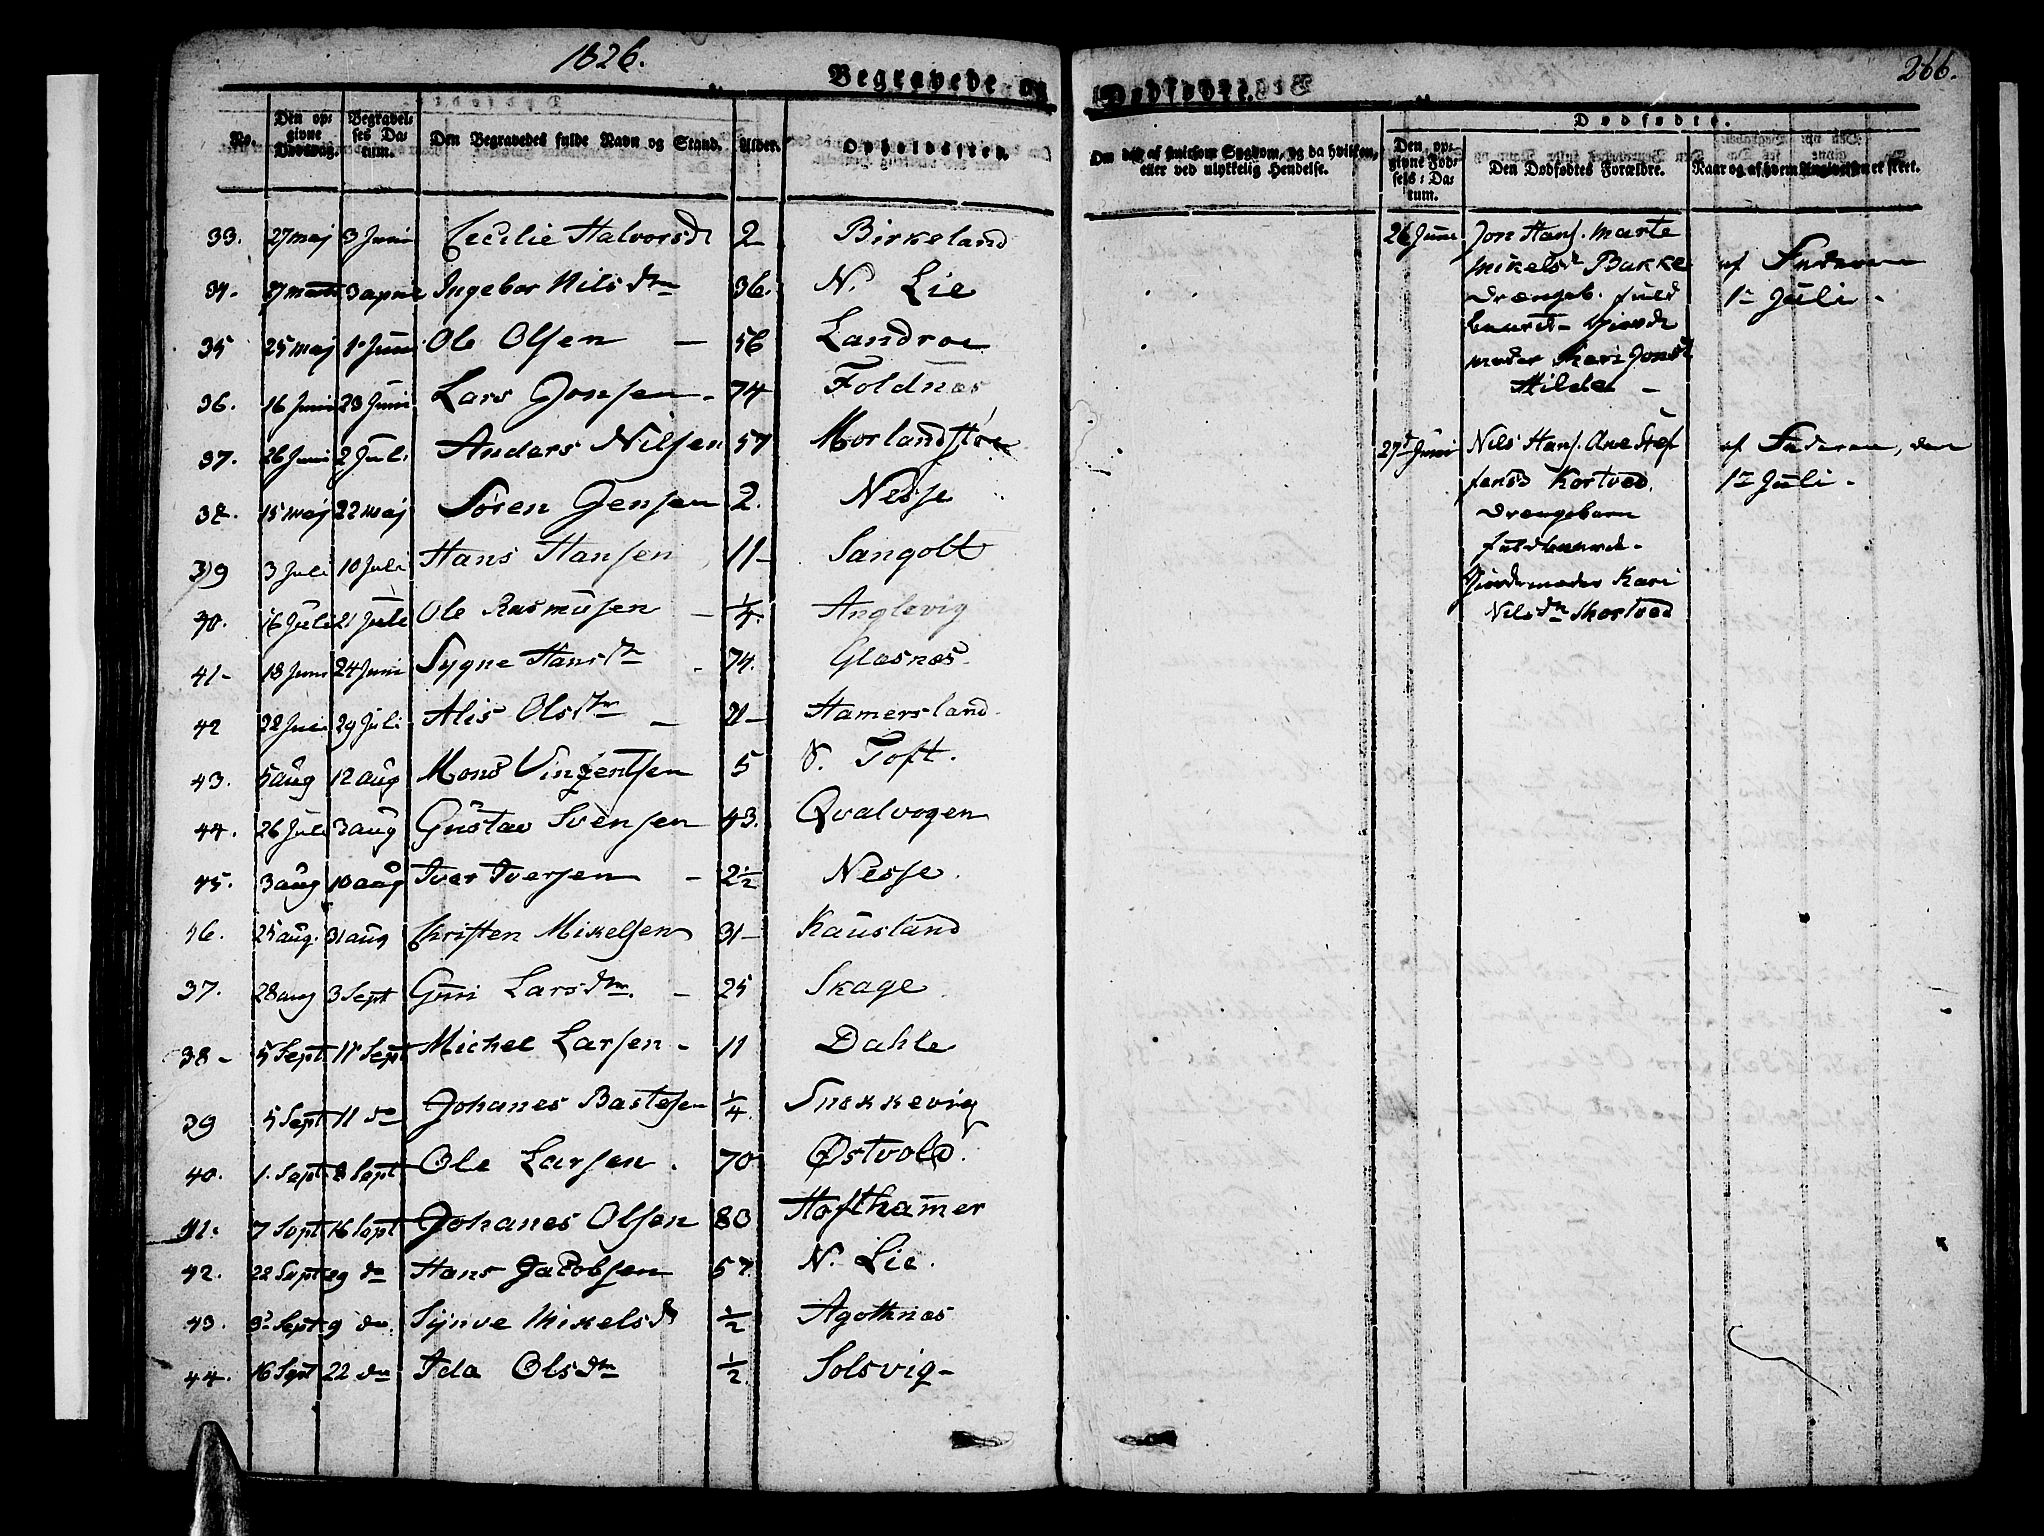 1826.
Begravede og Dødfødte.
266.
No.
Den op-
givne
Dødsdag.
Begravel-
ses Da-
tum.
Den Begravedes fulde Navn og Stand.
Alder.
Opholdssted.
Om død af smitsom Sygdom, og da hvilken,
eller ved ulykkelig Hendelse.
Dødfødte.
Den op-
givne Fød-
sels-Da-
tum.
Den Dødfødtes Forældre.
Naar og af hvem Angivelsen er skeet.
33. 27 maj 3 Juni Cecilie Halvorsdr 2 Birkeland
34. 3 april Ingebor Nils dtr 36. N. Lie
35 25 maj 1 Juni Ole Olsen - 56 Landroe
36. 16 Juni 23 Juni Lars Jonsen - 74 Foldnæs
37. 26 Juni 2 Juli Anders Nilsen 57 Morland
15 maj 22 maj Søren Jensen 2. Nesse
39 3 Juli 10 Juli Hans Hansen 11 - Sangolt
40. 16 Juli 21 Juli Ole Rasmusen - 1/4. Anglevig
41 - 18 Juni 24 Juni Sygne Hansdtr - 74. Glæsnæs.
42 22 Juni 29 Juli Alis Olsdtr - 21 - Hamersland
43. 5 aug 12 aug Mons Vingentsen 5 Toft.
44. 26 Juli 3 aug Gustav Svensen 43. Qvalvogen
45. 3 aug 10 aug Iver Iversen - 2 1/2 Nesse.
46. 25 aug. 31 aug Christen Mikelsen 31 - Kausland
37. 28 aug 3 Sept Guri Lars dtr. - 25 Skage
38 - 5 Sept 11 Sept Michel Larsen - 11 Dahle
39 5 Sept 11 do Johanes Bastesen 1/4. Snekkevig
40. 1. Sept 8 Sept Ole Larsen. 70 Østvold.
41. 7 Sept 16 Sept Johanes Olsen 80 Hofthamer
42. 22 Sept 29 do Hans Jacobsen 57 N. Lie.
43. 3 Sept 9 do Synve Mikelsdr 1/2 Agothnæs
44. 16 Sept 22 do Ida Ols dtr 1/2 Solsvig -
26 Juni Jon Hans. Marte
Mikelsdr Bakke af Faderen
Drængeb. fuld 1 Juli -
baaret -
moder Kari Jonsdr
Hilde -
27 Juni Nils Hans. Ane Stef af Faderen, den
fensd Kortved. 1 Juli -
Drængebarn
fuldbaaret -
Jordemoder Kari
Nilsdtr Skortved